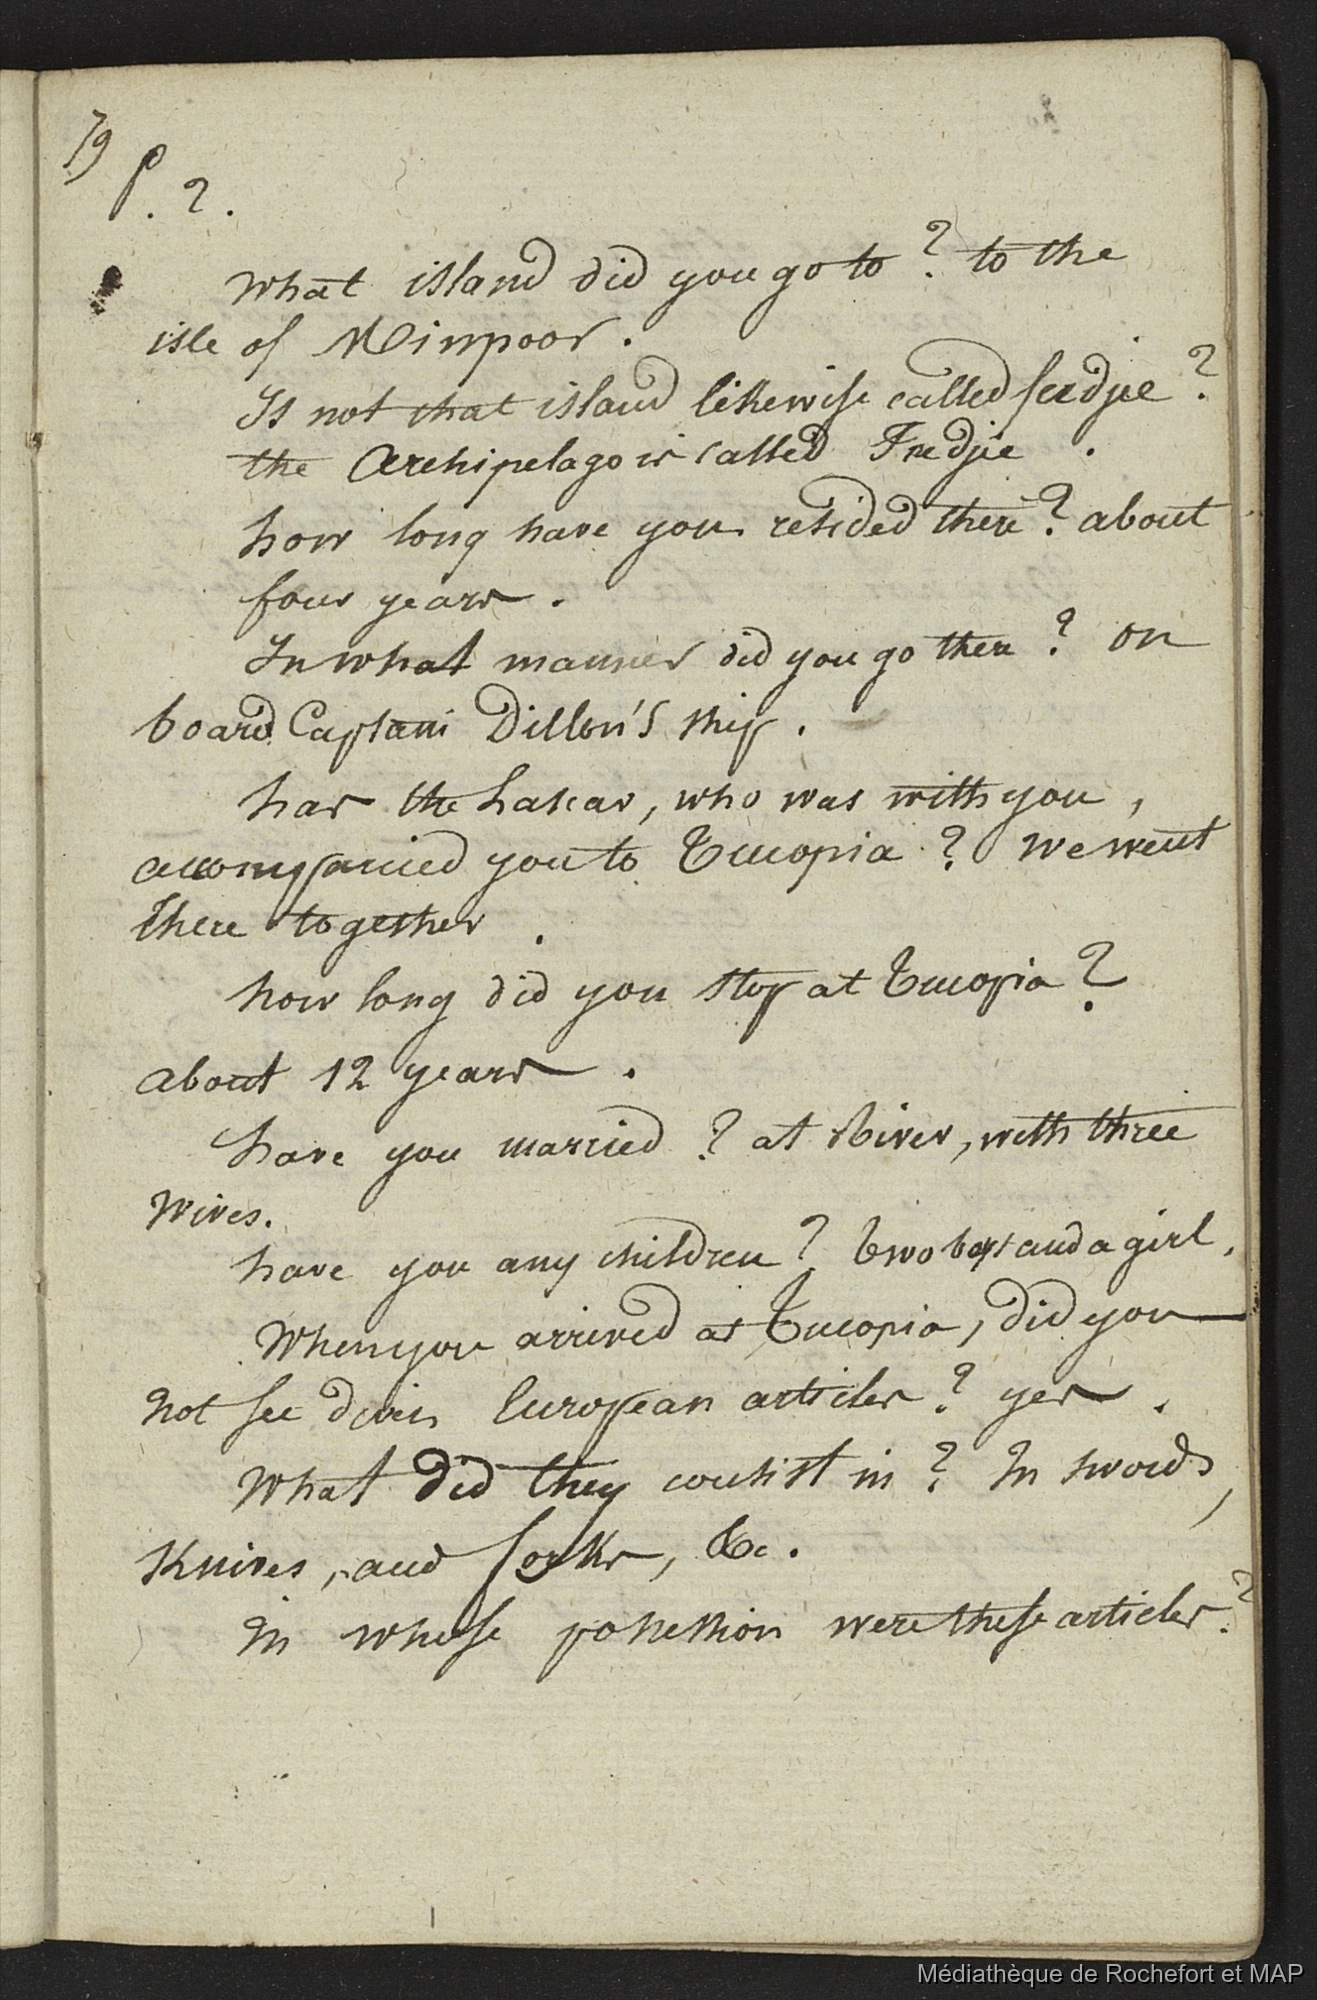 79
P. 2.
What island did you go to? to the
isle of Minpoor.
Is not that island likewise called feedjee?
the Archipelago is called Feedjie.
how long have you resided there? about
four years.
In what manner did you go there? on
board Captain Dillon's ship.
has the Lascar, who was with you,
accompanied you to Tucopia? We went
there together.
how long did you stop at Tucopia?
about 12 years.
have you married? at River, with three
Wives.
have you any children? two boys and a girl.
When you arrived at Tucopia, did you
not see European articles? yes.
What did they consist in? In swords,
Knives, and forks, &c.
In whose possession were these articles?
Médiathèque de Rochefort et MAP